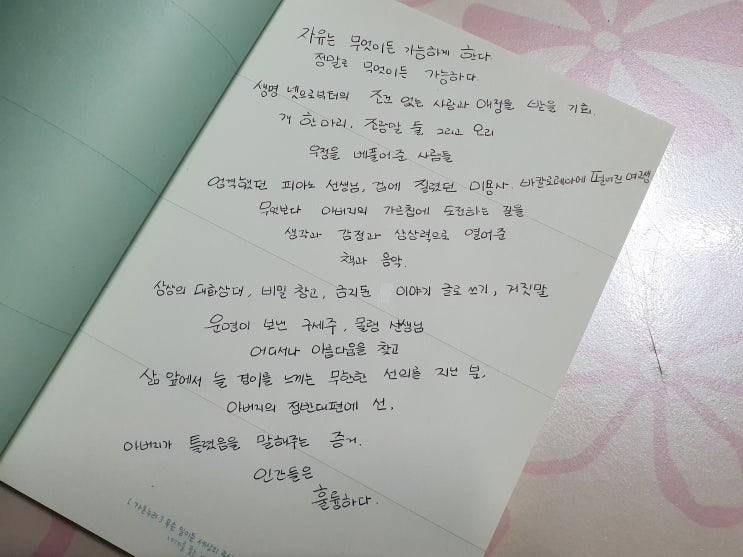 자유는 무엇이든 가능하게 한다.
정말로 무엇이든 가능하다.
생명 넷으로부터의 조건 없는 사랑과 애정을 받을 기회.
개 한 마리, 조랑말 둘 그리고 오리
우정을 베풀어 준 사람들
엄격했던 피아노 선생님, 겁에 질렸던 미용사. 바칼로레아에 떨어진 여고생
무엇보다 아버지의 가르침에 도전하는 길을
생각과 감정과 상상력으로 열어준
책과 음악.
상상의 대화상대, 비밀 창고, 금지된 이야기 글로 쓰기, 거짓말
운명이 보낸 구세주, 몰랭 선생님
어디서나 아름다움을 찾고
삶 앞에서 늘 경이를 느끼는 무한한 선의를 지닌 분.
아버지의 정반대편에 선,
아버지가 틀렸음을 말해주는 증거.
인간들은
훌륭하다.
[가온누리] 무슨 일이든 세상의